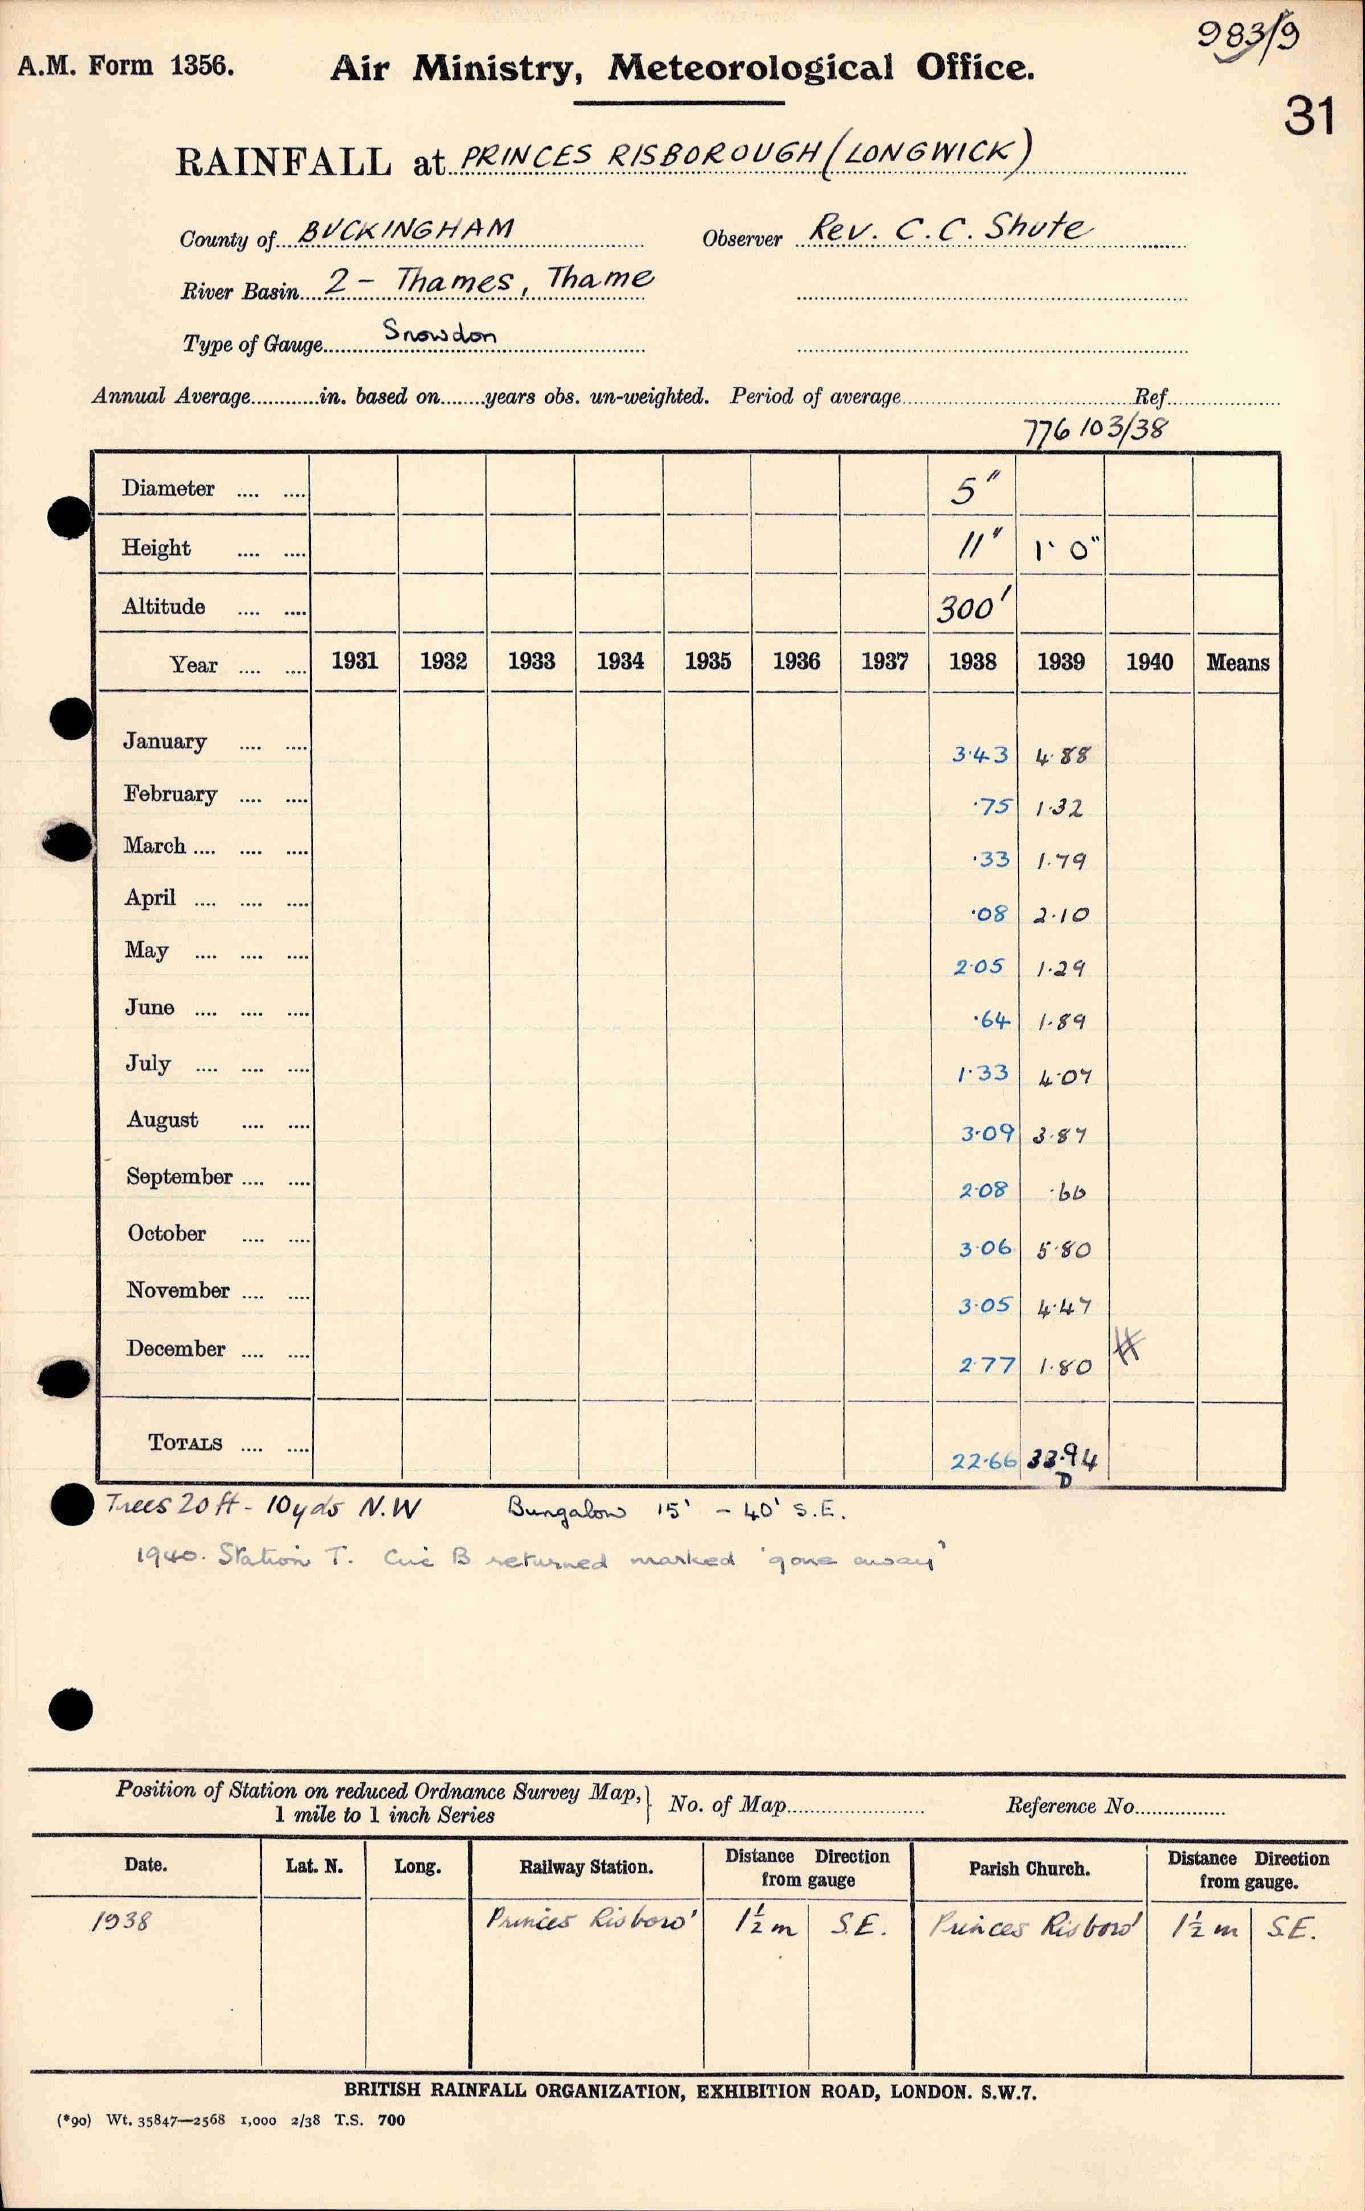 983/9
A.M. Form 1356. Air Ministry, Meteorological Office.
31
RAINFALL at PRINCES RISBOROUGH (LONGWICK)
County of BUCKINGHAM Observer Rev. C.C. Shute
River Basin 2 - Thames, Thame
Type of Gauge Snowdon
Annual Average............in. based on........years obs. un-weighted. Period of average............ Ref............
776103/38
Diameter .... .... 5"
Height .... .... 11" 1' 0"
Altitude .... .... 300'
Year .... .... 1931 1932 1933 1934 1935 1936 1937 1938 1939 1940 Means
January .... .... 3.43 4.88
February .... .... .75 1.32
March .... .... .... .33 1.79
April .... .... .... .08 2.10
May .... .... .... 2.05 1.29
June .... .... .... .64 1.89
July .... .... .... 1.33 4.07
August .... .... 3.09 3.87
September .... .... 2.08 .66
October .... .... 3.06 5.80
November .... .... 3.05 4.47
December .... .... 2.77 1.80
TOTALS .... .... 22.66 33.94
D
Trees 20 ft - 10 yds N.W Bungalow 15' - 40' S.E.
1940. Station T. Circ B returned marked 'gone away'
Position of Station on reduced Ordnance Survey Map, No. of Map............ Reference No............
1 mile to 1 inch Series
Date. Lat. N. Long. Railway Station. Distance Direction from gauge Parish Church. Distance Direction from gauge.
1938 Princes Risboro' 1½ m S.E. Princes Risboro' 1½ m S.E.
BRITISH RAINFALL ORGANIZATION, EXHIBITION ROAD, LONDON. S.W.7.
(*90) Wt. 35847—2568 1,000 2/38 T.S. 700